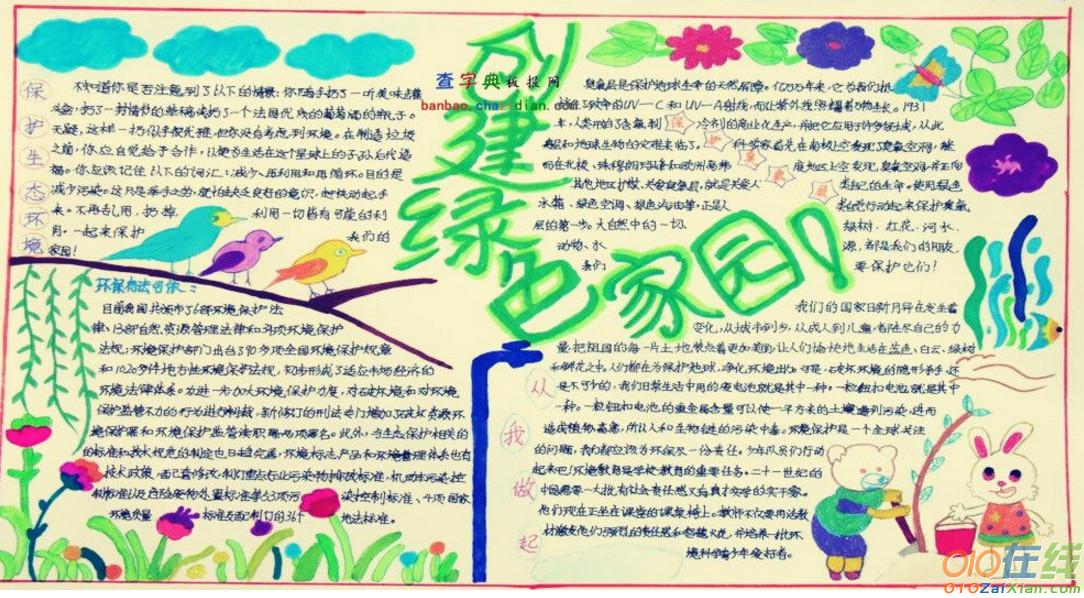 创建绿色家园!
查字典板报网
banbao.chazidian.com
保护生态环境
不知道你是否注意到了以下的情景:你随手扔了一听美味罐
头盒,扔了一封情节的草稿或扔了一个法国优质的葡萄酒的瓶子。
无疑,这样一扔似乎很光雅,但你没有考虑到环境。在制造垃圾
之前,你应自觉给予合作,以便为生活在这个星球上的子孙后代造
福。你应该记住以下的词汇:减少、再利用和再循环。目的是
减少污染。这只是举手之劳,
来。不再乱用,扔掉
利用一切皆有可能的利
用。一起来保护
我们的
家园!
臭氧层是保护地球生命的天然屏障。亿万年来,它为我们抵
挡了致命的UV-C和UV-A射线,而让紫外线照耀着万物生长。1931
年,人类开始了含氟利
冷剂的商业化生产,并把它应用于许多领域,从此
臭氧层和地球生物的灾难来临了。
科学家首先在南极上空发现了臭氧空洞,继
而在北极、珠穆朗玛峰和欧洲高纬
度地区上空发现,臭氧空洞并正向
其他地区扩散。关爱臭氧层,就是关爱人
类自己的生命。使用绿色
冰箱、绿色空调、绿色汽油等,正是人
类自觉行动起来保护臭氧
层的第一步。大自然中的一切,
绿树、红花、河水、
动物、水
源,都是我们的朋友。
我们
要保护它们!
环保有法可依:
目前我国共颁布了6部环境保护法
律、13部自然资源管理法律和
法规;环境保护部门出台了90多项全国环境保护规章
和1020多件地方性环境保护法规,初步形成了适应市场经济的
环境法律体系。为进一步加大环境保护力度,对破坏环境和对环境
保护监管不力的行为进行制裁,新修订的刑法专门增加了破坏资源环
境保护罪和环境保护监管渎职罪两项罪名。此外,与生态保护相关的
的标准和技术规范的制定也日趋完善,环境标志产品和环境管理体系也有
技术政策,
污染控制标准、4项国家
环境质量
标准及配制订的31个
地法标准。
从我做起
我们的国家日新月异在发生着
变化,从城市到乡,从成人到儿童,都在尽自己的力
量把祖国的每一片土地装点着更加美丽,让人们愉快地生活在蓝色、白云、绿树
和鲜花之中。人们都在为保护地球,净化环境出力。可是,破坏环境的隐形杀手,还
是不少的,我们日常生活中用的废电池就是其中一种。一粒钮扣电池就是其中
一种。一粒钮扣电池的重金属含量可以使一平方米的土壤遭到污染,进而
造成植物畜禽,所以人和生物链的污染中毒。环境保护是一个全球关注
的问题,我们都应该为环保尽一份责任。少年队员们行动
起来吧!环境教育是学校教育的重要任务。二十一世纪的
中国需要一大批有社会责任感又有真才实学的实干家。
他们现在正坐在课堂的课桌椅上。教师不仅要用活教
材激发他们强烈的责任感和智慧火光,并培养一批环
境科学青少年爱好者。
010在线
010ZaiXian.com